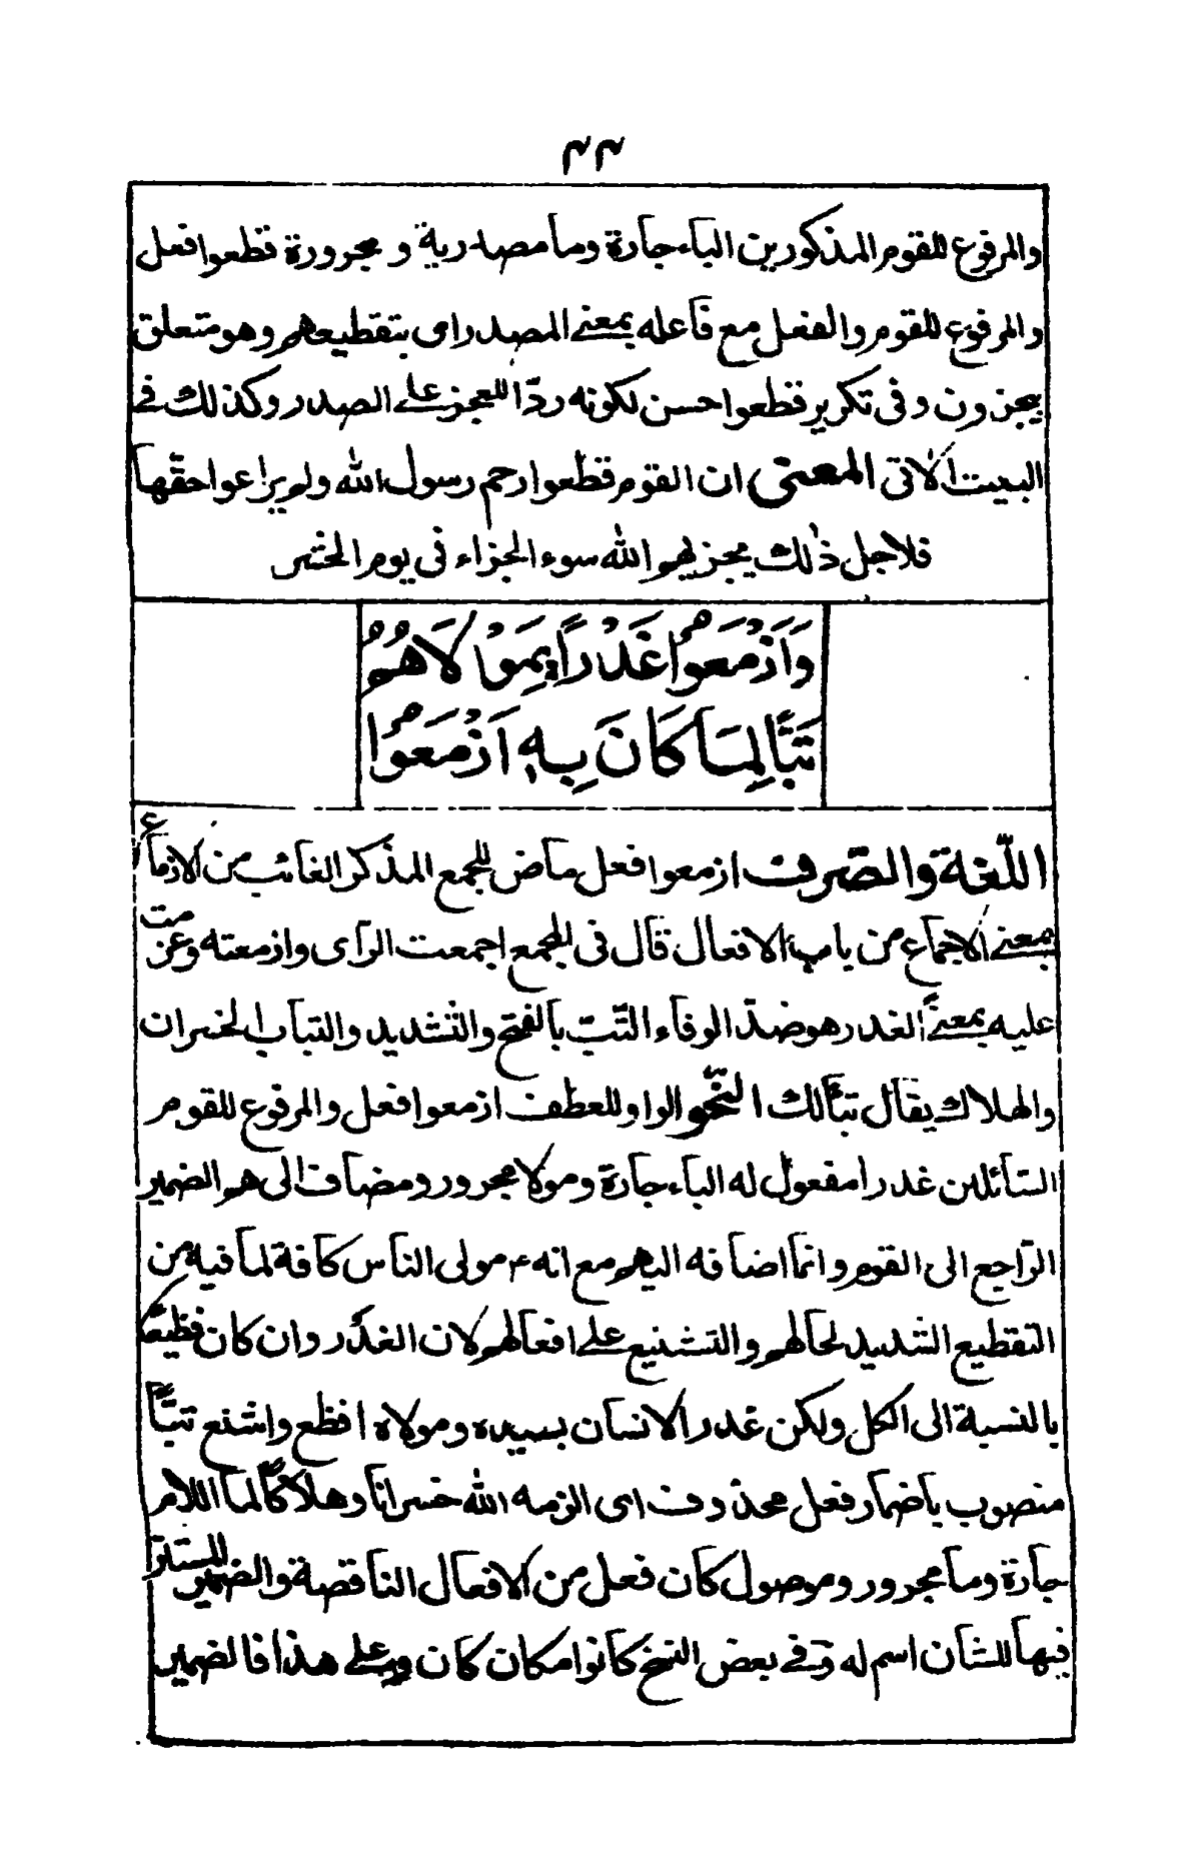 ٣٣
والمرفوع للقوم المذكورين الباء جارة وما مصدرية و مجرورة قطعوا فعل
والمرفوع للقوم والفعل مع فاعله بمعنى المصدر اى بتقطيعهم وهو متعلق
يجزون وفى تكرير قطعوا حسن لكونه ردّا للعجز على الصدر وكذلك فى
البيت الاتى المعنى ان القوم قطعوا رحم رسول الله ولم يراعوا حقّها
فلاجل ذلك يجزيهم الله سوء الجزاء فى يوم الحشر
وَاَزْمَعُوْا غَدْرًا بِمَوْلَاهُمُ
تَبًّا لِمَا كَانَ بِهٖ اَزْمَعُوْا
اللّغة والصّرف ازمعوا فعل ماض للجمع المذكر الغائب من الازماع
بمعنى الاجماع من باب الافعال قال فى المجمع اجمعت الراى وازمعته وعزمت
عليه بمعنىً الغدر هو ضدّ الوفاء التّبّ بالفتح والتشديد والتباب الخسران
والهلاك يقال تبّالك النّحو الواو للعطف ازمعوا فعل والمرفوع للقوم
السّائلين غدرا مفعول له الباء جارة ومولا مجرور ومضاف الى هم الضمير
الرّاجع الى القوم وانما اضافه اليهم مع انه ع مولى الناس كافة لما فيه من
التقطيع الشديد لحالهم والتشنيع على افعالهم لان الغدر وان كان فظيعًا
بالنسبة الى الكل ولكن غدر الانسان بسيده ومولاه افظع واشنع تبًّا
منصوب باضمار فعل محذوف اى الزمه الله خسرانا وهلاكًا لما اللام
جارة وما مجرور وموصول كان فعل من الافعال الناقصة والضمير المستتر
فيها للشان اسم له وفى بعض النسخ كانوا مكان كان وعلى هذا فالضمير